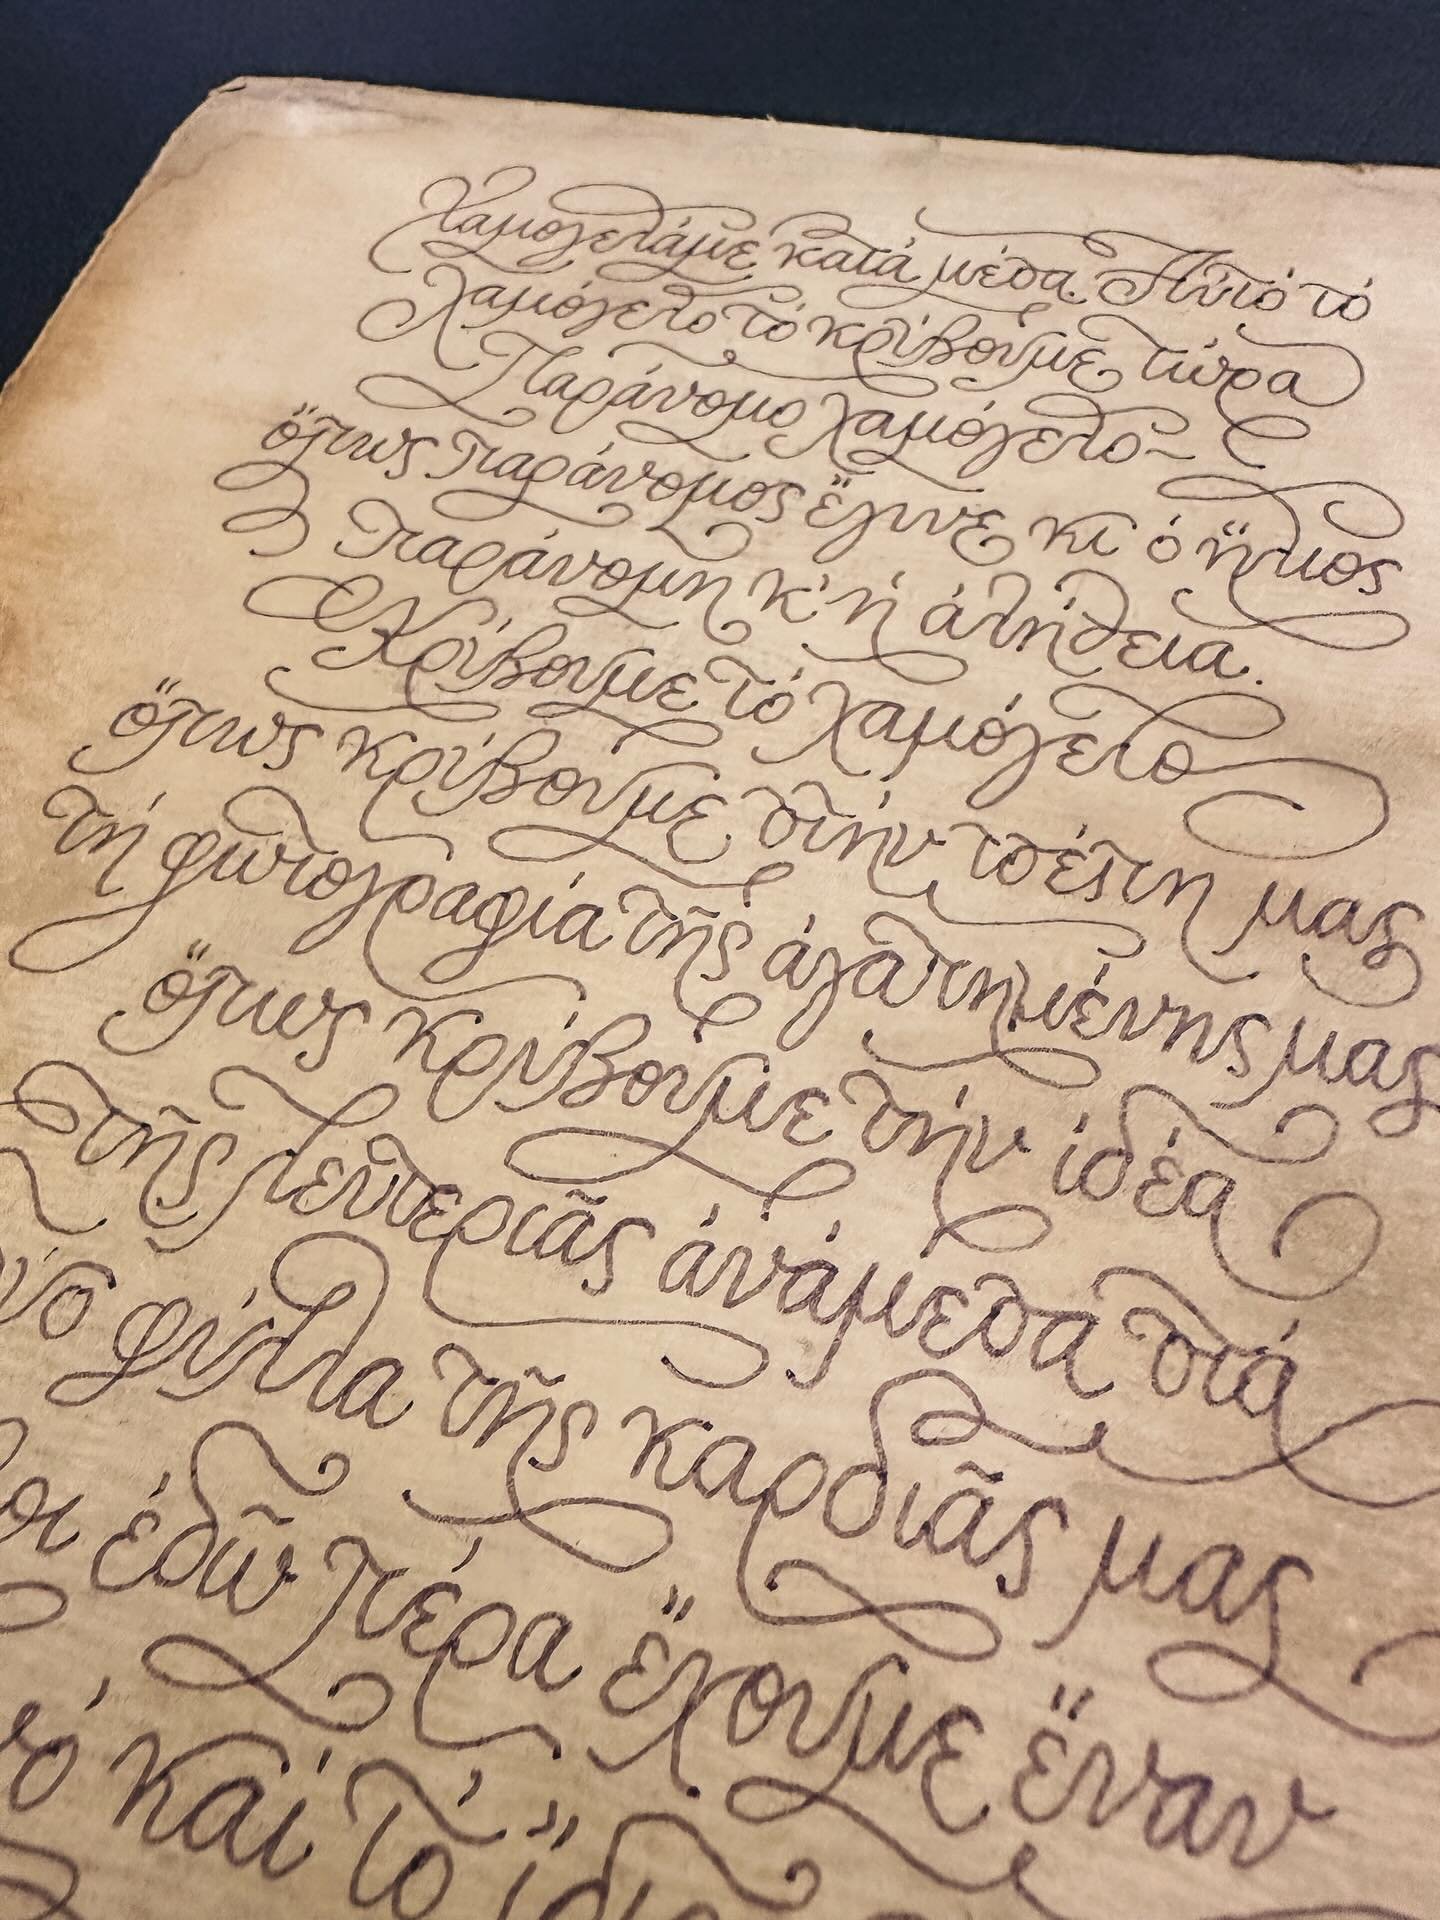 Χαμογελάμε κατά μέσα. Αὐτό τό
χαμόγελο τό κρύβουμε τώρα
Παράνομο χαμόγελο~
ὅπως παράνομος ἔγινε κι ὁ ἥλιος
παράνομη κ' ἡ ἀλήθεια.
Κρύβουμε τό χαμόγελο
ὅπως κρύβουμε στήν τσέπη μας
τή φωτογραφία τῆς ἀγαπημένης μας
ὅπως κρύβουμε τήν ἰδέα
τῆς λευτεριᾶς ἀνάμεσα στά
φύλλα τῆς καρδιᾶς μας
ἐδῶ πέρα ἔχουμε ἕναν
καί τό ἴδιο